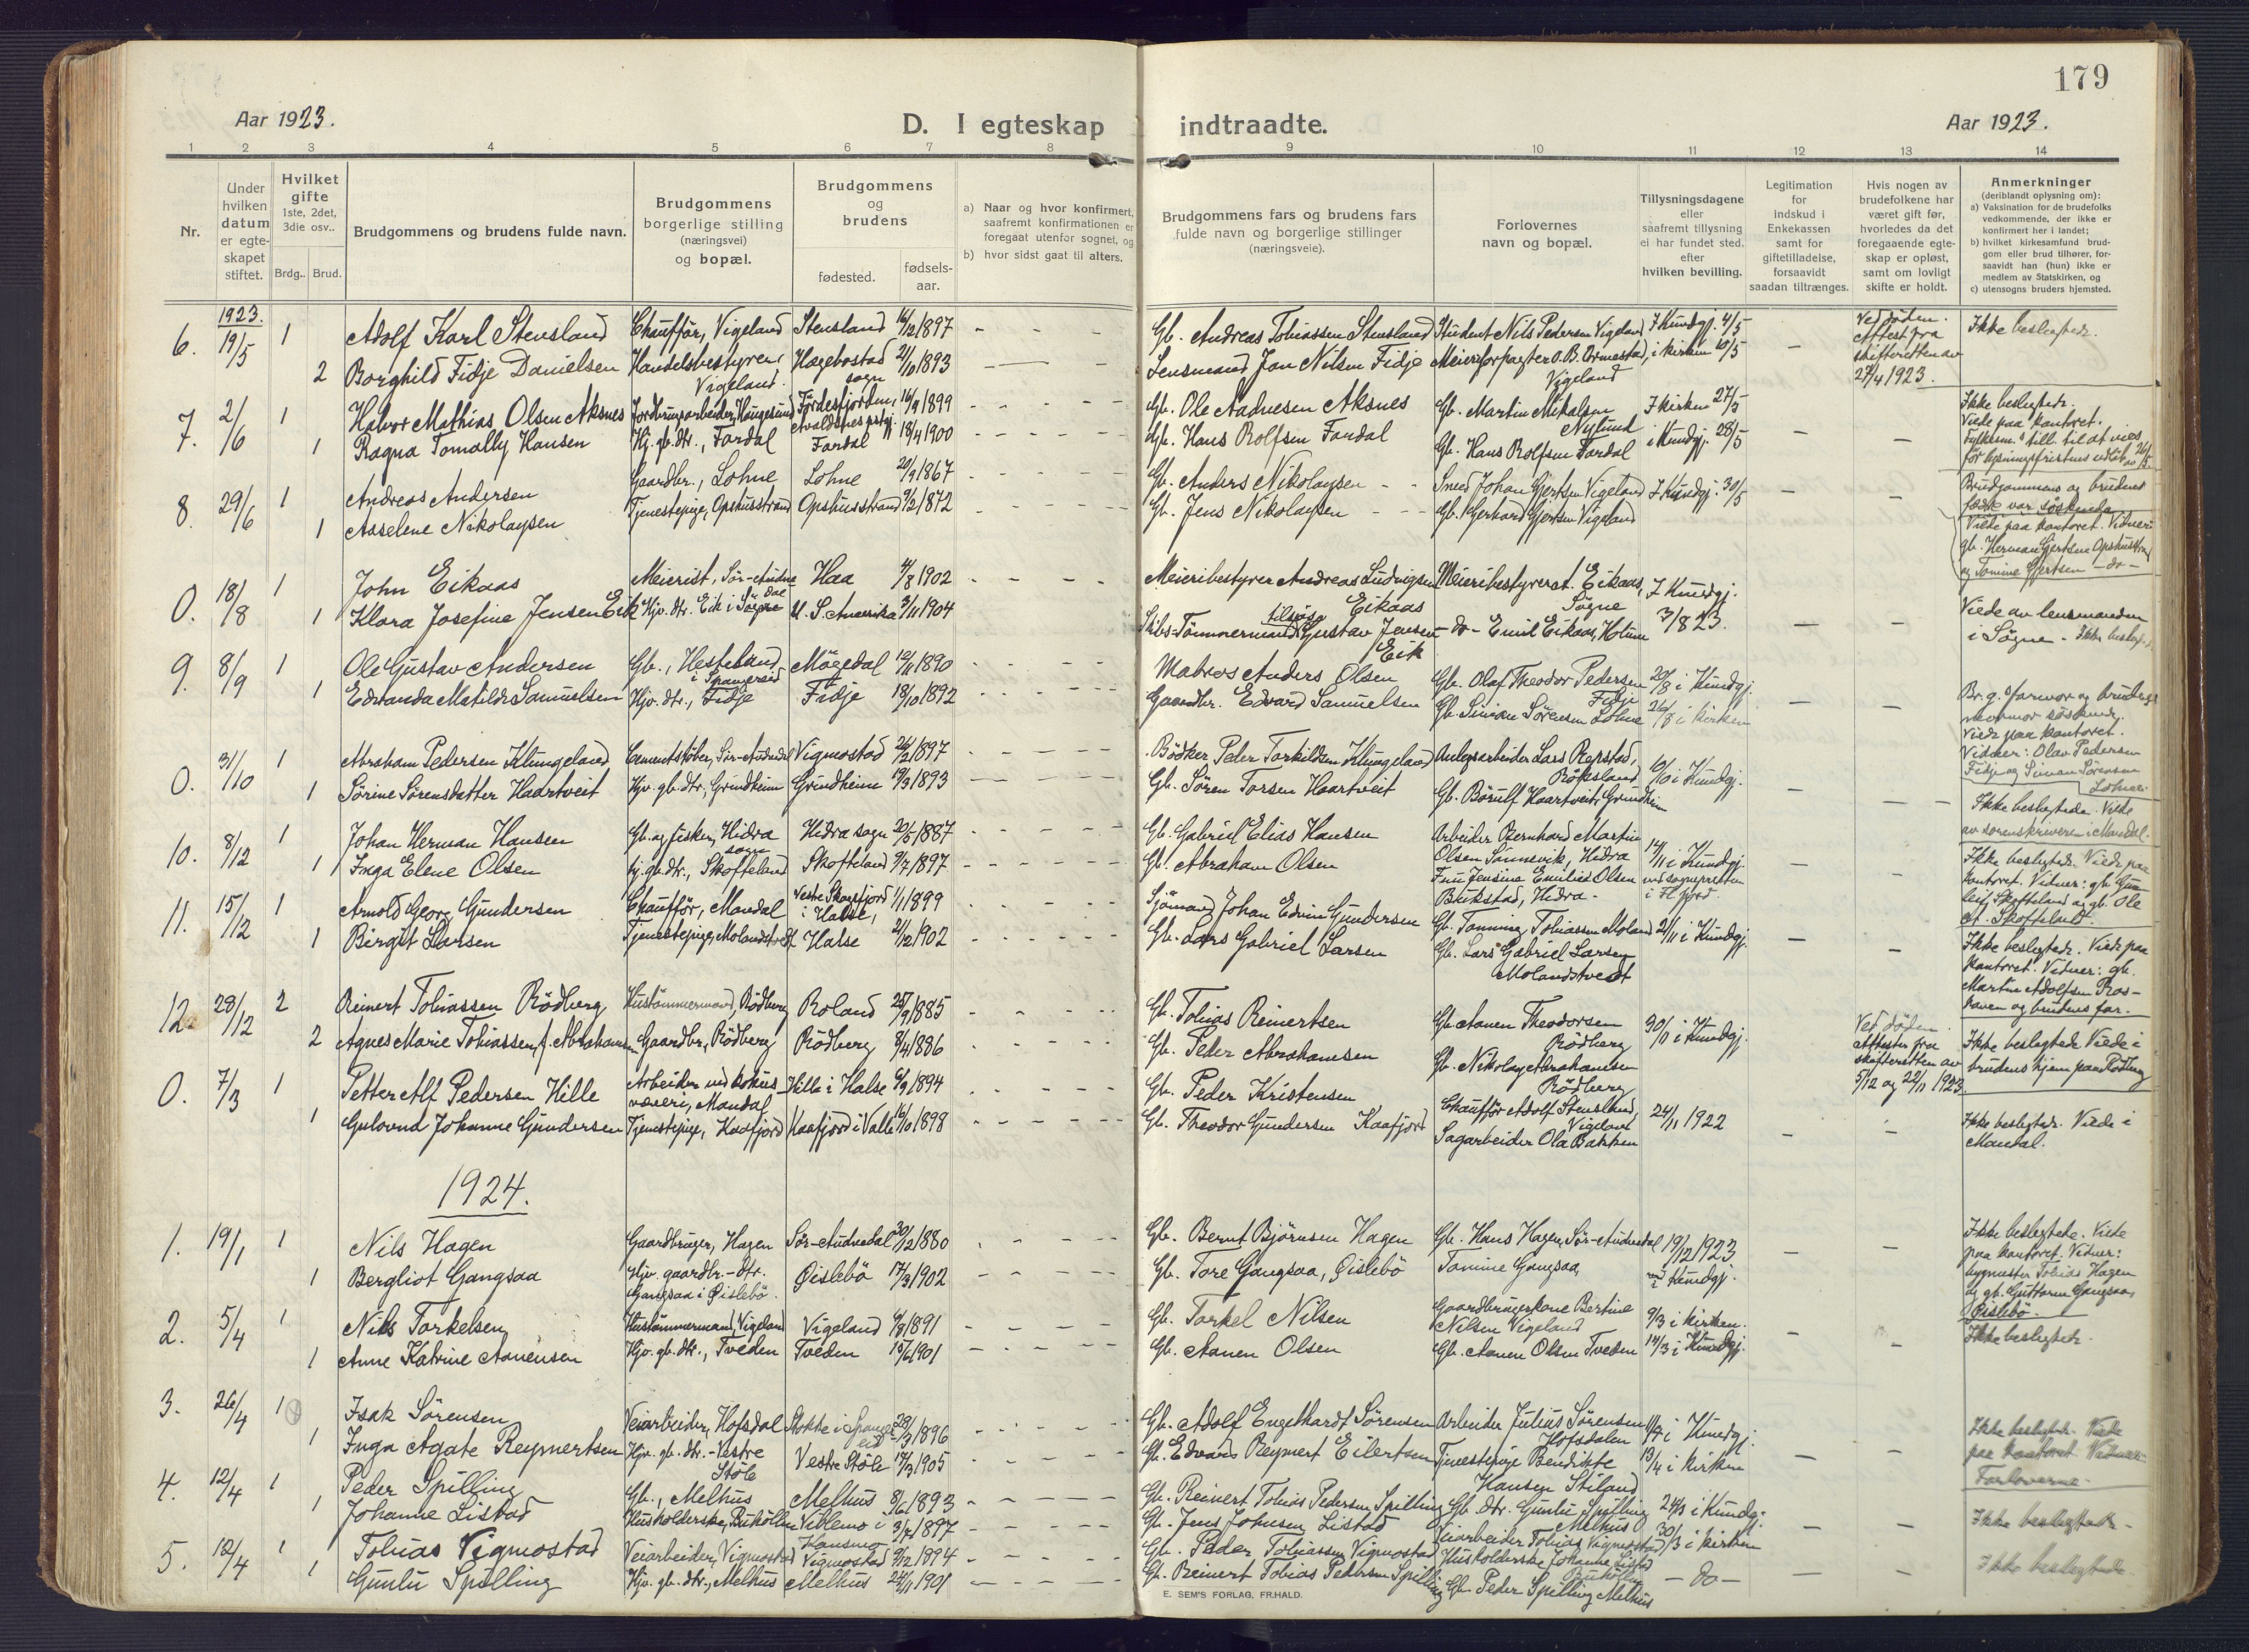 179
Aar 1923.
D. I egteskap indtraadte.
Aar 1923.
1 2 3 4 5 6 7 8 9 10 11 12 13 14
Nr.
Under hvilken datum er egteskapet stiftet.
Hvilket gifte 1ste, 2det, 3die osv..
Brdg.. Brud.
Brudgommens og brudens fulde navn.
Brudgommens borgerlige stilling (næringsvei) og bopæl.
Brudgommens og brudens
fødested.
fødsels-aar.
a) Naar og hvor konfirmert, saafremt konfirmationen er foregaat utenfor sognet, og
b) hvor sidst gaat til alters.
Brudgommens fars og brudens fars fulde navn og borgerlige stillinger (næringsveie).
Forlovernes navn og bopæl.
Tillysningsdagene eller saafremt tillysning ei har fundet sted, efter hvilken bevilling.
Legitimation for indskud i Enkekassen samt for giftetilladelse, forsaavidt saadan tiltrænges.
Hvis nogen av brudefolkene har været gift før, hvorledes da det foregaaende egteskap er opløst, samt om lovligt skifte er holdt.
Anmerkninger (deriblandt oplysning om):
a) Vaksination for de brudefolks vedkommende, der ikke er konfirmert her i landet;
b) hvilket kirkesamfund brudgom eller brud tilhører, forsaavidt han (hun) ikke er medlem av Statskirken, og
c) utensogns bruders hjemsted.
1923.
6. 19/5 1 Adolf Karl Stensland Chauffør, Vigeland Stensland 16/12 1897 Gb. Andreas Tobiassen Stensland Student Nils Pedersen Vigeland I Kundgj. 4/5 Ved døden. Attest fra skifteretten av 27/4 1923. Ikke beslegtede.
2 Borghild Fidje Danielsen Handelsbestyrer, Vigeland. Hægebostad sogn 21/10 1893 Lensmand Jan Nilsen Fidje Meieriforpagter O. B. Ormestad, Vigeland i kirken 10/5
7. 2/6 1 Halvor Mathias Olsen Aksnes Jordbruksarbeider, Haugesund Førdesfjorden, Avaldsnes prstgj. 16/9 1899 Gb. Ole Aadnesen Aksnes Gb. Martin Mikalsen Nylund I kirken 27/5 Ikke beslegtede. Viede paa kontoret.
1 Ragna Tomally Hansen Hj. gb. dtr., Fardal Fardal 18/4 1900 Gb. Hans Rolfsen Fardal Gb. Hans Rolfsen Fardal i Kundgj. 28/5
8. 29/6 1 Andreas Andersen Gaardbr., Lohne Lohne 20/9 1867 Gb. Anders Nikolaysen Smed Johan Gjertsen Vigeland I Kundgj. 30/5 Brudgommens og brudens fædre var søskende
1 Asselene Nikolaysen Tjenestepige, Opshusstrand Opshusstrand 9/2 1872 Gb. Jens Nikolaysen Gb. Gerhard Gjertsen Vigeland Viede paa kontoret. Vidner: gb. Herman Gjertsen Opshusstrand og Tomine Gjertsen - do -
0. 18/8 1 John Eikaas Meierist, Sør-Audnedal Haa 4/8 1902 Meieribestyrer Andreas Ludvigsen Eikaas Meieribestyrer A. Eikaas, Søgne I Kundgj. 3/8 23. Viede av lensmanden i Søgne - Ikke beslegt.
1 Klara Josefine Jensen Eik Hjv. dtr. Eik i Søgne U. S. Amerika 3/11 1904 Skibs-Tømmermand tilsjøs Gustav Jensen Eik - do - Emil Eikaas, Holum
9. 8/9 1 Ole Gustav Andersen Gb., Hesteland i Spangereid Møgedal 12/11 1890 Matros Anders Olsen Gb. Olaf Theodor Pedersen Fidje 20/8 i Kundgj. Br. g.s farmor og brudens mormor søskende. Viede paa kontoret. Vidner: Olav Pedersen Fidje og Simon Sørensen Lohne.
1 Edvanda Matilde Samuelsen Hjv. dtr., Fidje Fidje 18/10 1892 Gaardbr. Edvard Samuelsen Gb. Simon Sørensen Lohne 26/8 i kirken
0. 31/10 1 Abraham Pedersen Klungeland Cementstøber, Sør-Audnedal Vigmostad 26/2 1897 Bødker Peder Tarkildsen Klungeland Anlegsarbeider Lars Repstad, Røksland 10/10 i Kundgj. Ikke beslegtede. Viede av sorenskriveren i Mandal.
1 Sørine Sørensdatter Haartveit Hjv. gb. dtr. Grindheim Grindheim 19/3 1893 Gb. Søren Torsen Haartveit Gb. Børulf Haartveit, Grindheim
10. 8/12 1 Johan Herman Hansen Gb. og fisker, Hidra sogn Hidra sogn 20/5 1887 Gb. Gabriel Elias Hansen Arbeider Bernhard Martin Olsen Sannesvik, Hidra 14/11 i Kundgj. ved sognepresten i Fl.fjord. Ikke beslegtede. Viede paa kontoret. Vidner: gb. Gunleif Skofteland og gb. Ole A. Skofteland.
1 Inga Elene Olsen hj. gb. dtr., Skofteland Skofteland 9/7 1897 Gb. Abraham Olsen Fru Jensine Emilie Olsen Bukstad, Hidra.
11. 15/12 1 Arnold Georg Gundersen Chauffør, Mandal Vestre Skogsfjord i Halse, 1/1 1899 Sjømand Johan Edvin Gundersen Gb. Tønning Tobiassen Moland 21/11 i Kundgj. Ikke beslegtede. Viede paa kontoret. Vidner: gb. Martin Adolfsen Roshaven og brudens far.
1 Birgit Larsen Tjenestepige, Molandstvedt Halse 2/12 1902 Gb. Lars Gabriel Larsen Gb. Lars Gabriel Larsen Molandstvedt
12. 28/12 2 Reinert Tobiassen Rödberg Hustömmermand, Rödberg Roland 25/9 1885 Gb. Tobias Reinertsen Gb. Aanen Theodorsen Rödberg 30/11 i Kundgj. Ved døden. Attester fra skifteretten av 5/12 og 22/11 1923. Ikke beslegtede Viede i brudens hjem paa Rödberg
2 Agnes Marie Tobiassen, f. Abrahamsen Gaardbr., Rödberg Rödberg 8/4 1886 Gb. Peder Abrahamsen Gb. Nikolay Abrahamsen Rödberg
0. 7/3 1 Petter Alf Pedersen Hille Arbeider ved kokusvæveri, Mandal Hille i Halse 6/9 1894 Gb. Peder Kristensen Chauffør Adolf Stensland, Vigeland 24/11 1922 Ikke beslegtede. Viede i Mandal.
1 Gulovnd Johanne Gundersen Tjenestepige, Kaafjord Kaafjord i Valle 16/10 1898 Gb. Theodor Gundersen Kaafjord Sagarbeider Ola Bakken
1924.
1. 19/1 1 Nils Hagen Gaardbruger, Hagen Sør-Audnedal 30/12 1880 Gb. Bernt Bjørnsen Hagen Gb. Hans Hagen, Sør-Audnedal 19/12 1923 i Kundgj. Ikke beslegtede. Viede paa kontoret. Vidner: bygmester Tobias Hagen og gb. Guttorm Gangsaa, Øislebø.
1 Bergliot Gangsaa Hjv. gaardbr.-dtr. Gangsaa i Øislebø. Øislebö 17/3 1902 Gb. Tore Gangsaa, Øislebö Tomine Gangsaa,
2. 5/4 1 Nils Torkelsen Hustömmermand, Vigeland Vigeland 4/8 1891 Gb. Torkel Nilsen Gaardbrugerkone Bertine Nilsen Vigeland 9/3 i kirken. Ikke beslegtede.
1 Anne Katrine Aanensen Hjv. gb. dtr., Tveden Tveden 15/6 1901 Gb. Aanen Olsen Gb. Aanen Olsen Tveden 14/3 i Kundgj.
3. 26/4 1 Isak Sörensen Veiarbeider, Hofsdal Stokke i Spangereid 29/3 1896 Gb. Adolf Engelhardt Sörensen Arbeider Julius Sörensen Hofsdalen 11/4 i Kundgj. Ikke beslegtede. Viede paa kontoret. Vidner: Forloverne.
1 Inga Agate Reymertsen Hjv. gb. dtr. - Vestre Støle Vestre Støle 17/3 1905 Gb. Edvard Reymert Eilertsen Tjenestepige Bendikte Hansen Stiland 13/4 i kirken
4. 12/4 1 Peder Spilling Gb., Melhus Melhus 8/6 1893 Gb. Reinert Tobias Pedersen Spilling Gb. dtr. Gunlu Spilling Melhus 24/3 i Kundgj. Ikke beslegtede.
1 Johanne Listad Husholderske, Buköllen 3/7 1897 Gb. Jens Johnsen Listad Veiarbeider Tobias Vigmostad 30/3 i kirken
5. 12/4 1 Tobias Vigmostad Veiarbeider, Vigmostad Vigmostad 9/12 1894 Gb. Peder Tobiassen Vigmostad Husholderske Johanne Listad Buköllen - do - Ikke beslegtede
1 Gunlu Spilling Hjv. gb. dtr., Melhus Melhus 24/11 1901 Gb. Reinert Tobias Pedersen Spilling Gb. Peder Spilling Melhus
E. SEM'S FORLAG, FR.HALD.